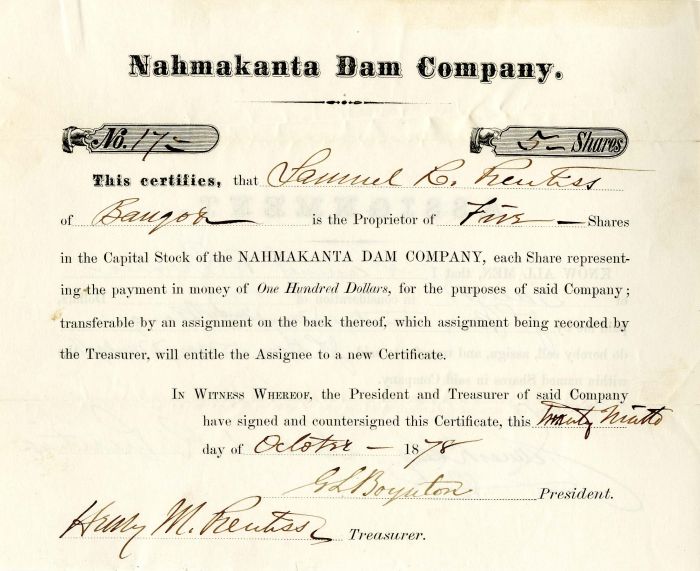 Nahmakanta Dam Company.
No. 17 5 Shares
This certifies, that Samuel R. Prentiss
of Bangor is the Proprietor of Five Shares
in the Capital Stock of the NAHMAKANTA DAM COMPANY, each Share represent-
ing the payment in money of One Hundred Dollars, for the purposes of said Company;
transferable by an assignment on the back thereof, which assignment being recorded by
the Treasurer, will entitle the Assignee to a new Certificate.
In Witness Whereof, the President and Treasurer of said Company
have signed and countersigned this Certificate, this Twenty Ninth
day of October 1878
G L Boynton President.
Henry M. Prentiss Treasurer.